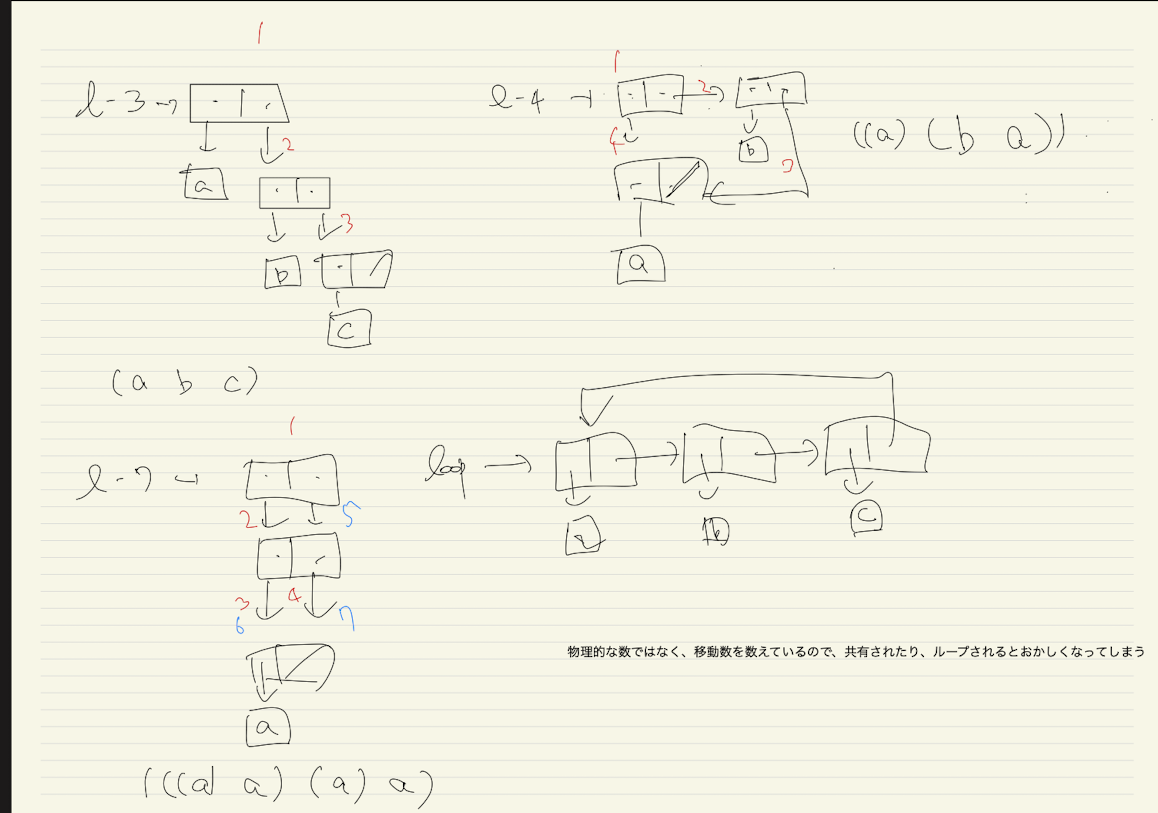 1
l-3 →
2
a
3
b
c
(a b c)
1
l-4 →
2
4
b
3
a
((a) (b a))
1
l-7 →
2 5
3 4
6 7
a
(((a) a) (a) a)
loop →
a b c
物理的な数ではなく、移動数を数えているので、共有されたり、ループされるとおかしくなってしまう